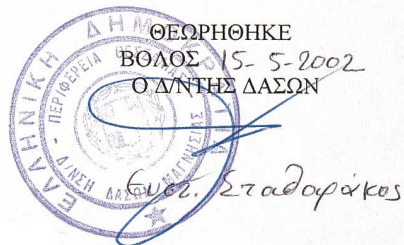 ΘΕΩΡΗΘΗΚΕ
ΒΟΛΟΣ 15-5-2002
Ο Δ/ΝΤΗΣ ΔΑΣΩΝ
Ευστ. Σταθαράκος
ΕΛΛΗΝΙΚΗ ΔΗΜΟΚΡΑΤΙΑ
ΠΕΡΙΦΕΡΕΙΑ ΘΕΣΣΑΛΙΑΣ
Δ/ΝΣΗ ΔΑΣΩΝ ΜΑΓΝΗΣΙΑΣ